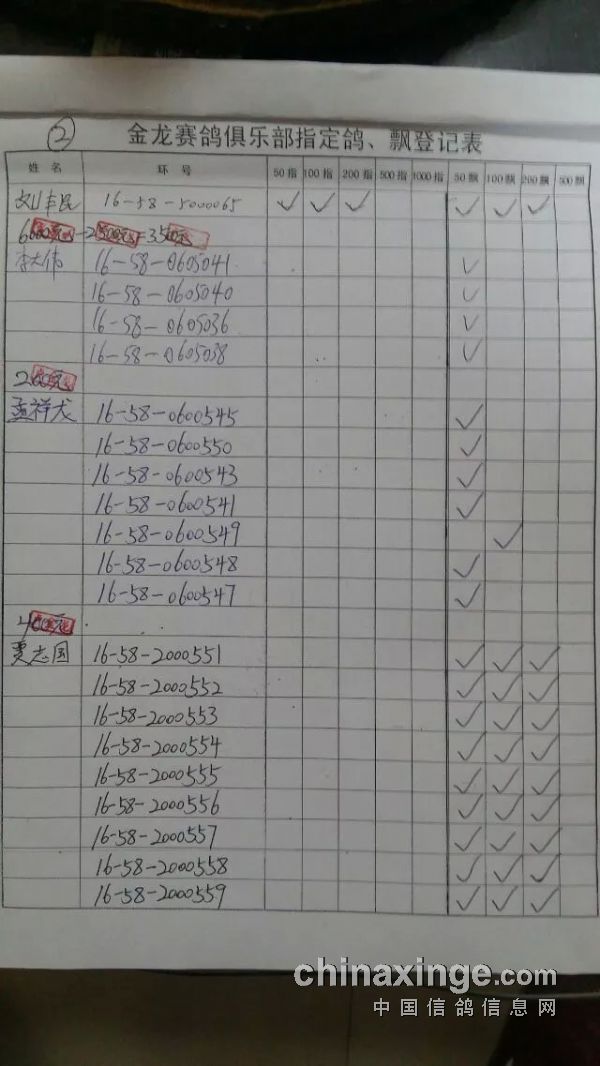 ②
金龙赛鸽俱乐部指定鸽、飘登记表
姓名 环号 50指 100指 200指 500指 1000指 50飘 100飘 200飘 500飘
16-58-5000065 ✓ ✓ ✓ ✓ ✓ ✓
李大伟 16-58-0605041 ✓
16-58-0605040 ✓
16-58-0605036 ✓
16-58-0605038 ✓
200元
孟祥龙 16-58-0600545 ✓
16-58-0600550 ✓
16-58-0600543 ✓
16-58-0600541 ✓
16-58-0600549 ✓
16-58-0600548 ✓
16-58-0600547 ✓
400元
贾志国 16-58-2000551 ✓ ✓ ✓
16-58-2000552 ✓ ✓ ✓
16-58-2000553 ✓ ✓ ✓
16-58-2000554 ✓ ✓ ✓
16-58-2000555 ✓ ✓ ✓
16-58-2000556 ✓ ✓ ✓
16-58-2000557 ✓ ✓ ✓
16-58-2000558 ✓ ✓ ✓
16-58-2000559 ✓ ✓ ✓
chinaxinge.com
中国信鸽信息网